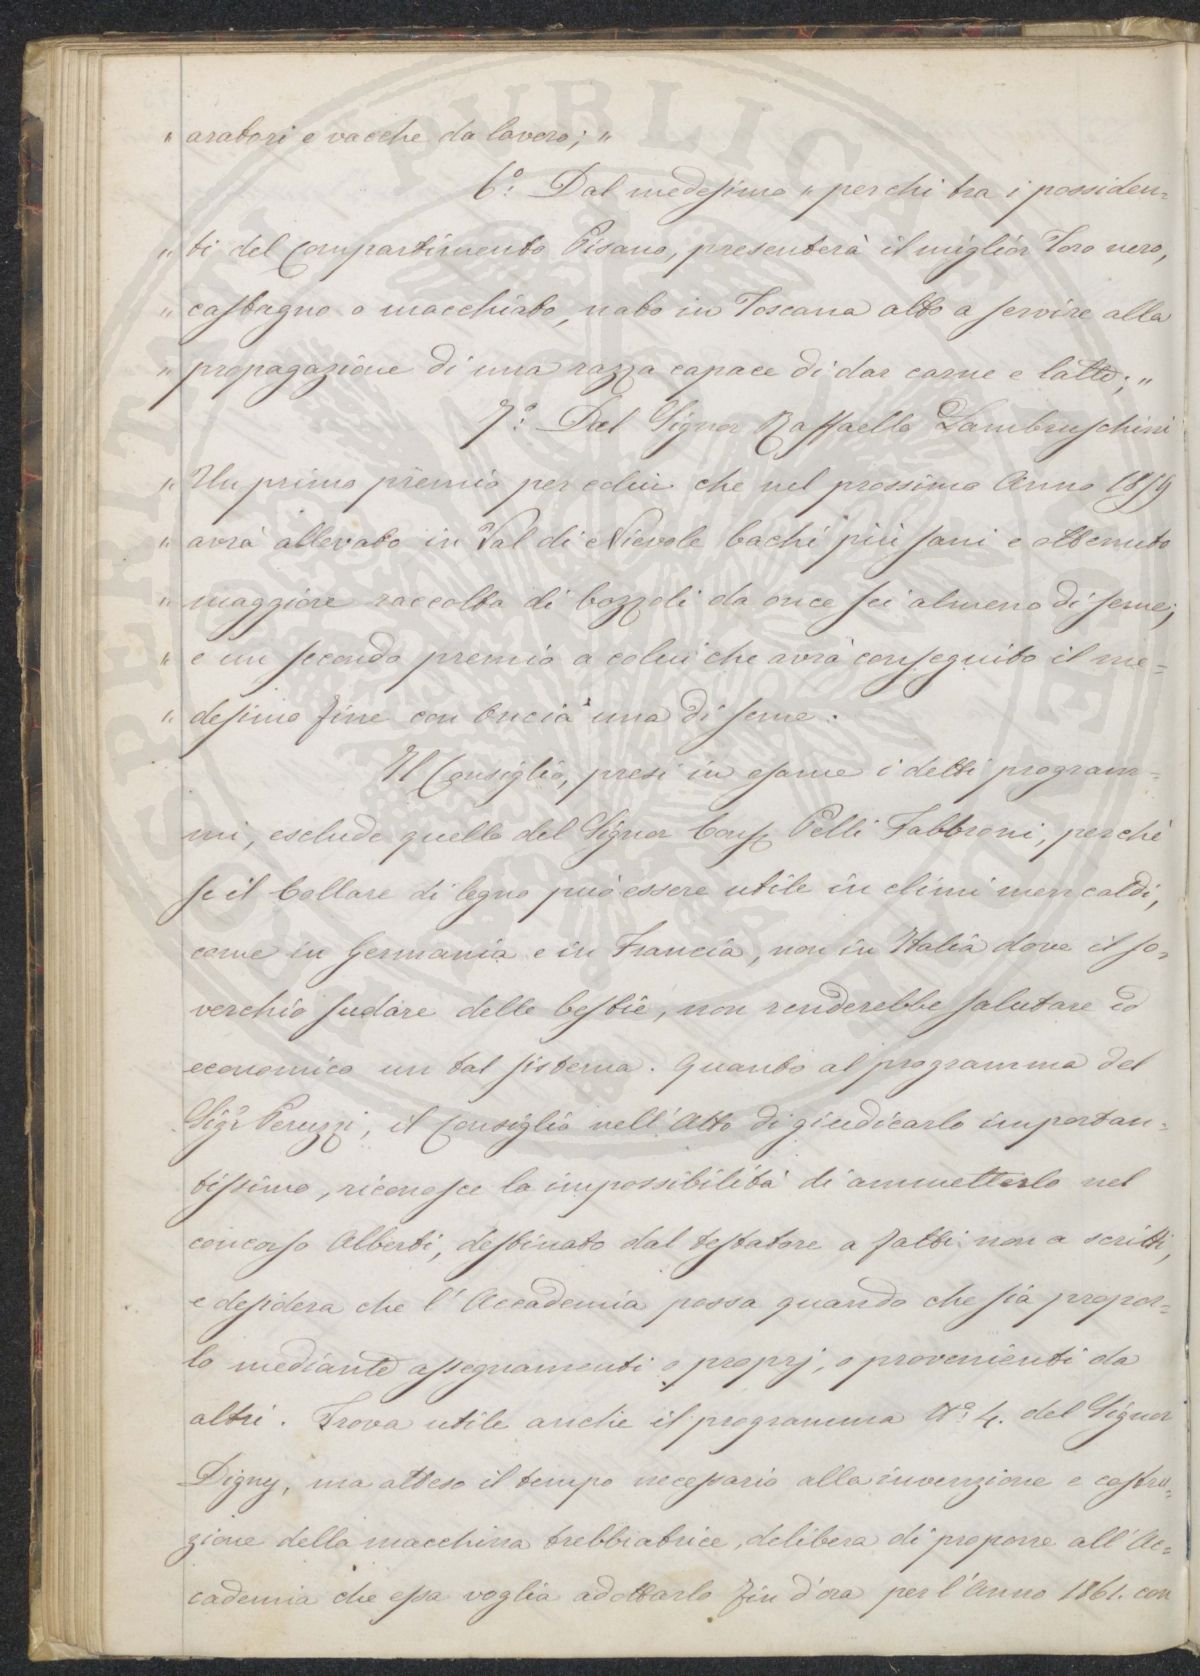 " aratori e vacche da lavoro; "
6.° Dal medesimo " per chi tra i possiden=
" ti del Compartimento Pisano, presenterà il miglior Toro nero,
" castagno o macchiato, nato in Toscana atto a servire alla
" propagazione di una razza capace di dar carne e latte; "
7.° Dal Signor Raffaello Lambruschini
" Un primo premio per colui che nel prossimo Anno 1859
" avrà allevato in Val di Nievole bachi più sani e ottenuto
" maggiore raccolta di bozzoli da once sei almeno di seme;
" e un secondo premio a colui che avrà conseguito il me=
" desimo fine con Oncia una di seme.
Il Consiglio, presi in esame i detti program=
mi, esclude quello del Signor Cons. Pelli Fabbroni, perchè
se il Collare di legno può essere utile in climi men caldi,
come in Germania e in Francia, non in Italia dove il so=
verchio sudare delle bestie, non renderebbe salutare ed
economico un tal sistema. Quanto al programma del
Sig.r Peruzzi, il Consiglio nell'Atto di giudicarlo importan=
tissimo, riconosce la impossibilità di ammetterlo nel
concorso Alberti, destinato dal testatore a fatti non a scritti,
e desidera che l'Accademia possa quando che sia propor=
lo mediante assegnamenti o proprj, o provenienti da
altri. Trova utile anche il programma N.° 4. del Signor
Digny, ma atteso il tempo necessario alla invenzione e costru=
zione della macchina trebbiatrice, delibera di proporre all'Ac=
cademia che essa voglia adottarlo fin d'ora per l'Anno 1861. con
PUBLICAE
PROSPERITATI
AUGENDAE